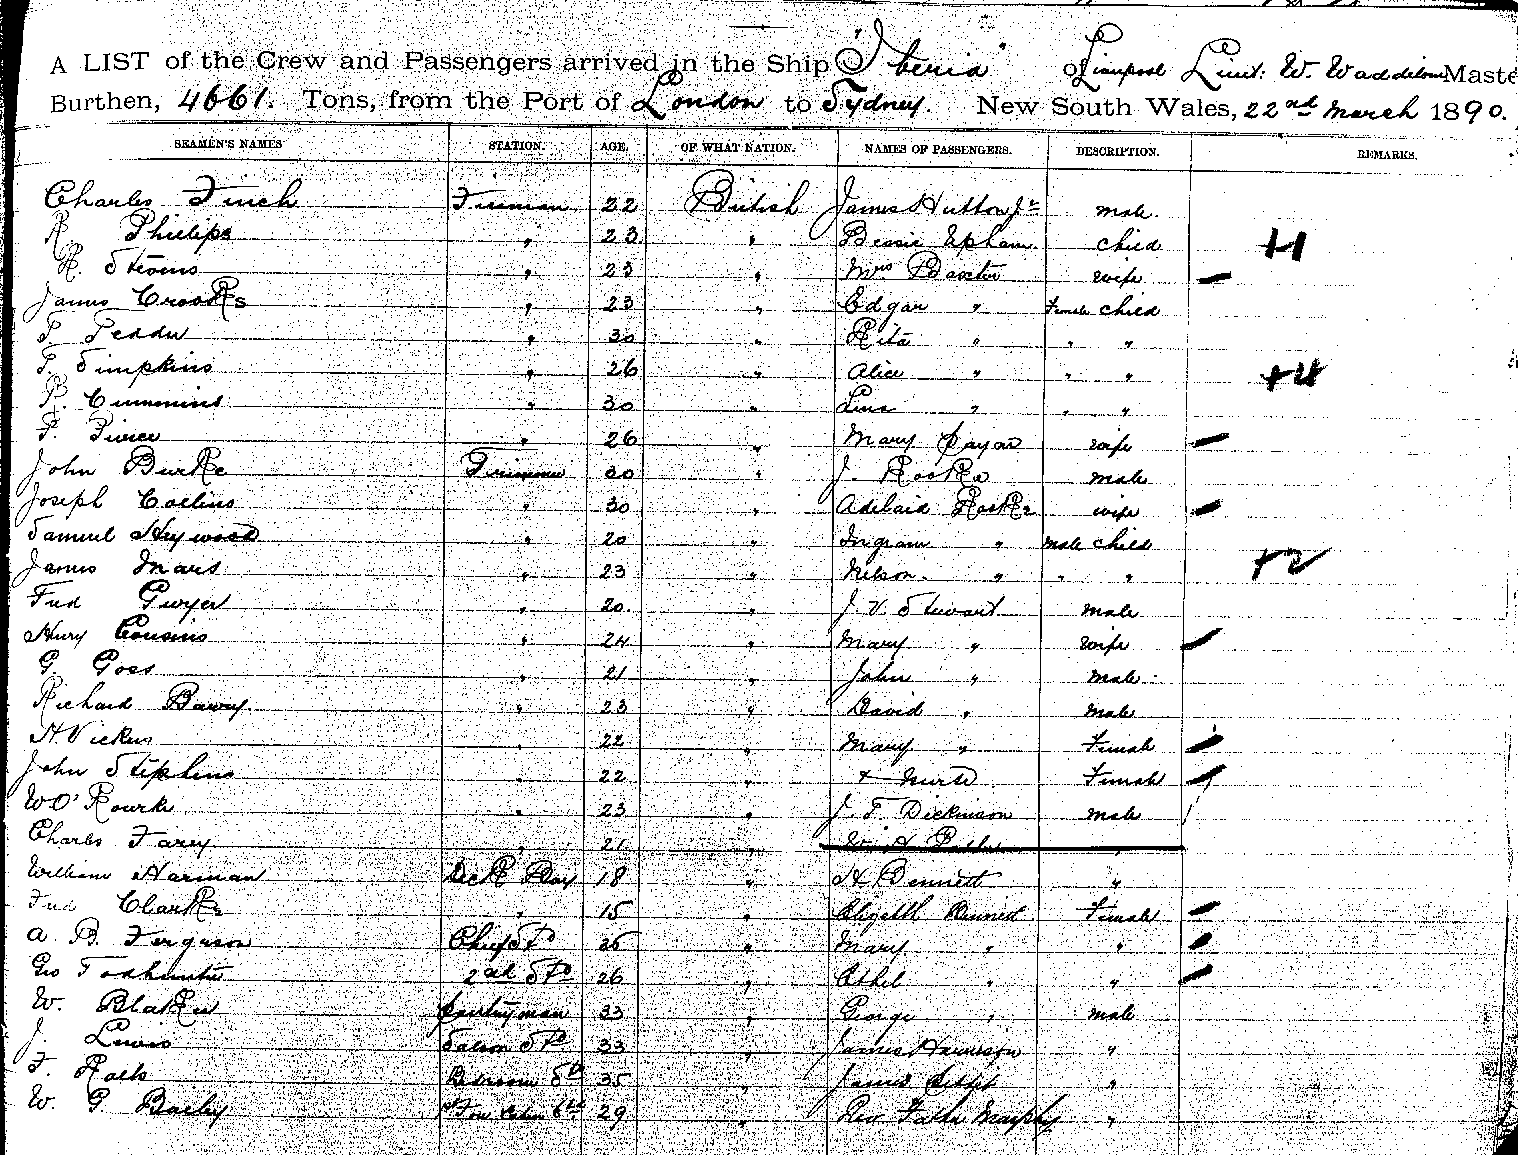 A LIST of the Crew and Passengers arrived in the Ship "Iberia" of Liverpool Lieut: W. Waddilove Maste
Burthen, 4661. Tons, from the Port of London to Sydney. New South Wales, 22nd March 1890.
SEAMEN'S NAMES STATION. AGE. OF WHAT NATION. NAMES OF PASSENGERS. DESCRIPTION. REMARKS.
Charles Finch Fireman 22 British James Hutton Jr male.
R Phillips " 23 " Bessie Upham. child +1
R. Stevens " 23 " Mrs Baxter wife
James Crooks " 23 " Edgar " Female child
T 30 " Rita " " "
T. Simpkins " 26 " Alice " " " +4
R. Cummins " 30 " Lena " " "
F. Pierce " 26 " Mary wife
John Burke Trimmer 20 " J. Rooke male
Joseph Collins " 30 " Adelaid Rooke wife
Samuel Heywood " 20 " Ingram " male child
James Mars " 23 " Nelson. " " " +2
Fred Gwyer " 20. " J. V. Stewart male
Henry Cousins " 24 " Mary " wife
G. Goss " 21 " John " male.
Richard Barry. " 23 " David " male
H. Vickers " 22 " Mary " Female
John Stephens " 22 " + Nurse Female
W O'Rourke " 23 " J. F. Dickinson male
Charles Farey " 21 " W. H. "
William Harman Deck Boy 18 " H Bennett "
Fred Clarke " 15 " Elizath Bennett Female
A B. Ferguson Chief St 25 " Mary " "
Geo Todhunter 2nd St 26 " Ethel " "
W. Blaker Pantryman 33 " George " male
J. Lewis Saloon St 33 " James Harrison "
F. Bedroom St 35 " James "
W. G. Bailey 29 " Rev. Father Murphy "